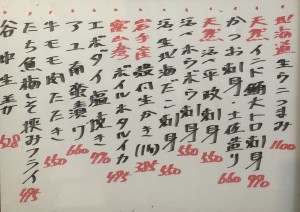 北海道生ウニつまみ 1100
天然インド鮪大トロ刺身 990
かつお刺身・土佐造り 660
天然活〆平政刺身 550
活〆ホウボウ刺身 550
活生北海だこ刺身 550
岩手産殻付生かき(1ヶ) 385
富山湾ボイルホタルイカ 495
エボダイ塩焼き 770
エリアユ南蛮漬け 660
牛モモ肉たたき 550
たち魚梅しそ挟みフライ 495
谷中生姜 528